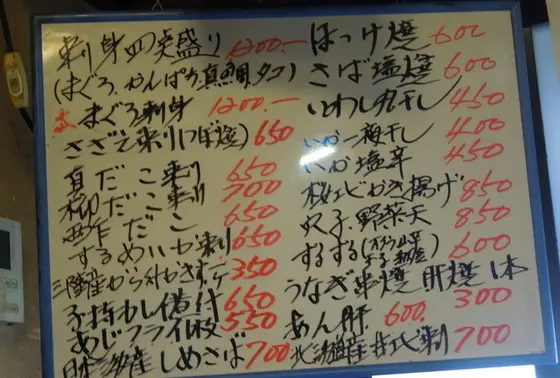 刺身四点盛り 1200.—
(まぐろ、かんぱち、真鯛、タコ)
まぐろ刺身 1200.—
さざえ刺り(つぼ焼) 650
真だこ刺り 650
柳だこ刺り 700
酢だこ 650
するめいか刺り 650
三陸産から付かき 350
子持もし 650
あじフライ1枚 550
日本海産しめさば 700
ほっけ焼 600
さば塩焼 600
いわし丸干し 450
いか一梅干し 400
いか塩辛 450
桜エビかき揚げ 850
野菜天 850
するする 600
うなぎ串焼 肝焼 1本 300
あん肝 600.
北海道産 刺 700